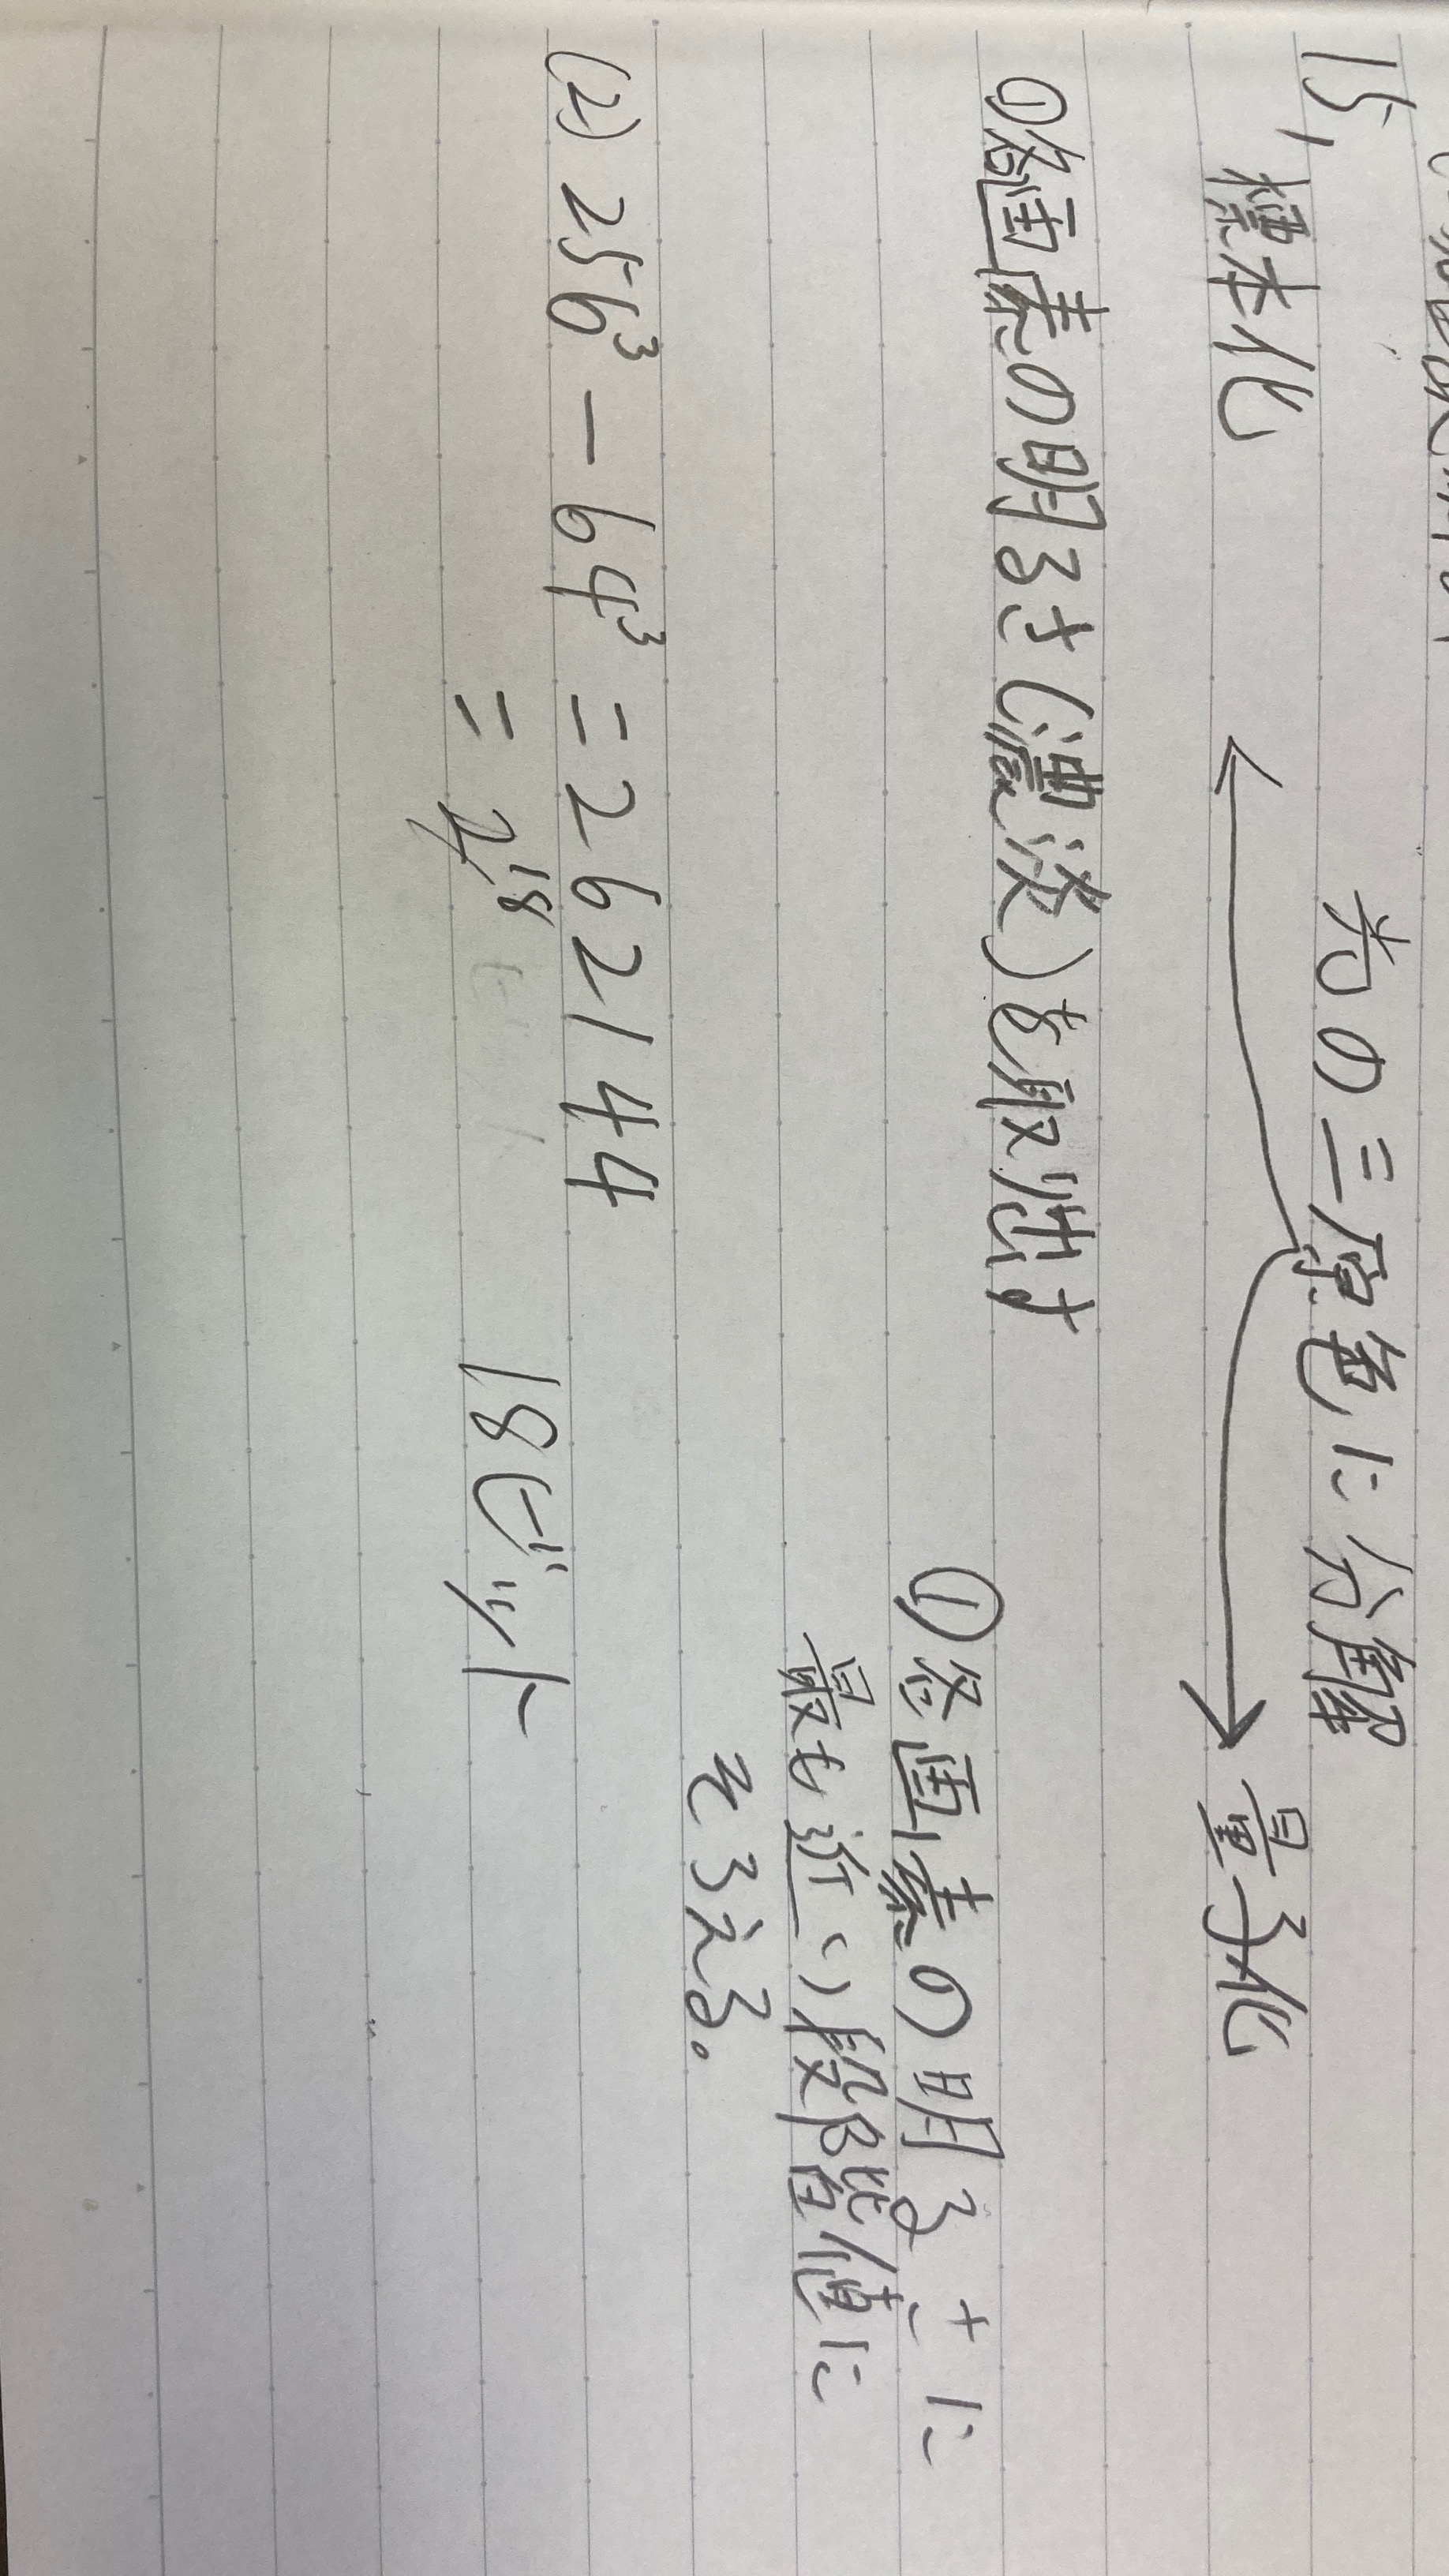 光の三原色に分解
15, 標本化
量子化
①各画素の明るさ(濃淡)を取出す
①各画素の明るさに
最も近い段階値に
そろえる。
(2) 256³ - 64³ = 262144
= 2¹⁸
18ビット